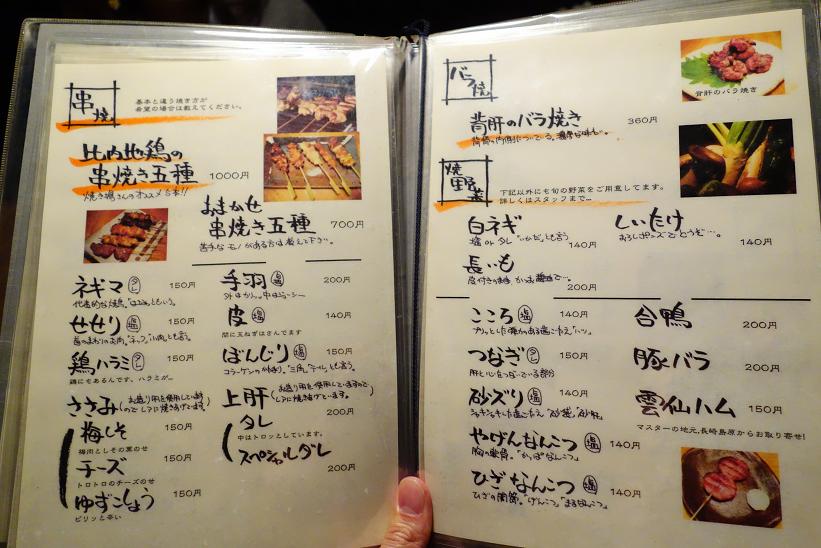 串焼
基本と違う焼き方が
希望の場合は教えてください。
比内地鶏の
串焼き五種 1000円
おまかせ
串焼き五種 700円
苦手なモノがある方は教えて下さい。
ネギマ タレ 150円
せせり 塩 150円
鶏ハラミ タレ 150円
鶏にもあるんです、ハラミが…
ささみ
梅しそ 150円
梅肉としその葉のせ
チーズ 150円
トロトロのチーズのせ
ゆずこしょう 150円
ピリッと辛い
手羽 塩 200円
皮 塩 140円
間に玉ねぎはさんでます
ぼんじり 塩 150円
上肝
タレ 200円
中はトロンとしています。
スペシャルダレ 200円
バラ焼
背肝のバラ焼き
背肝のバラ焼き 360円
焼野菜
下記以外にも旬の野菜をご用意してます。
詳しくはスタッフまで…
白ネギ
塩 or タレ 140円
しいたけ 140円
長いも 200円
こころ 塩 140円
つなぎ タレ 150円
砂ズリ 塩 140円
やげんなんこつ 塩 140円
ひざなんこつ 塩 140円
合鴨 200円
豚バラ 200円
雲仙ハム 150円
マスターの地元、長崎島原からお取り寄せ!